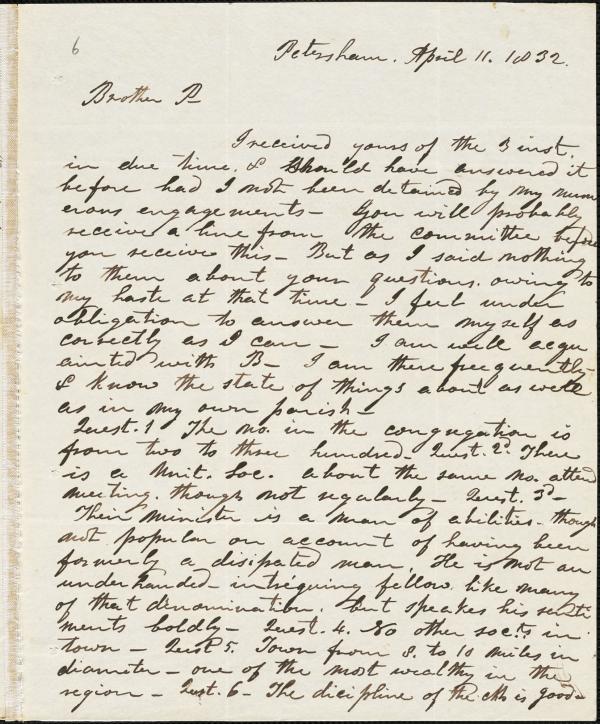 6
Petersham. April 11. 1832.
Brother P—
I received yours of the 3 inst.
in due time. & should have answered it
before had I not been detained by my num
erous engagements — You will probably
receive a line from the committee before
you receive this — But as I said nothing
to them about your questions. owing to
my haste at that time — I feel under
obligation to answer them myself as
correctly as I can — I am well acqu
ainted with B— I am there frequently —
& know the state of things about as well
as in my own parish —
Quest. 1 The no. in the congregation is
from two to three hundred — Quest. 2d. There
is a Unit. Soc. about the same no. attend
meeting. though not regularly — Quest. 3d —
Their minister is a man of abilities — though
not popular on account of having been
formerly a disipated man. He is not an
underhanded — intriguing fellow. like many
of that denomination. but speakes his senti
ments boldly — Quest. 4. No other socts. in
town — Quest 5. Town from 8. to 10 miles in
diameter — one of the most wealthy in the
region — Quest. 6 — The dicipline of the chh is good —